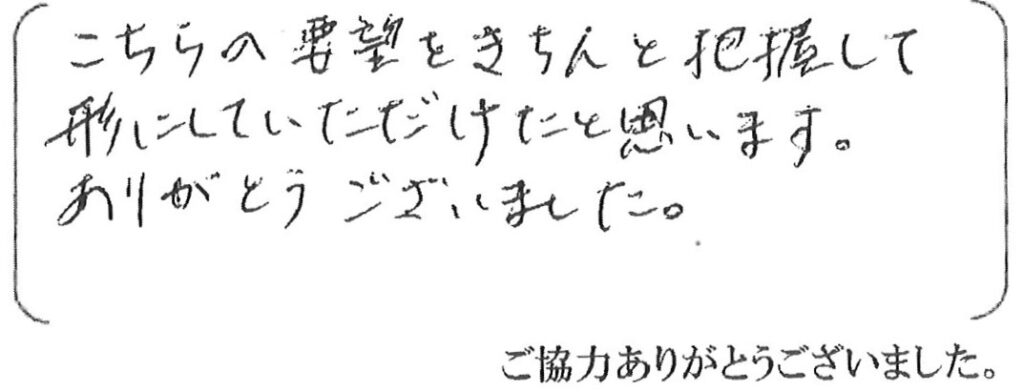 こちらの要望をきちんと把握して
形にしていただけたと思います。
ありがとうございました。
ご協力ありがとうございました。